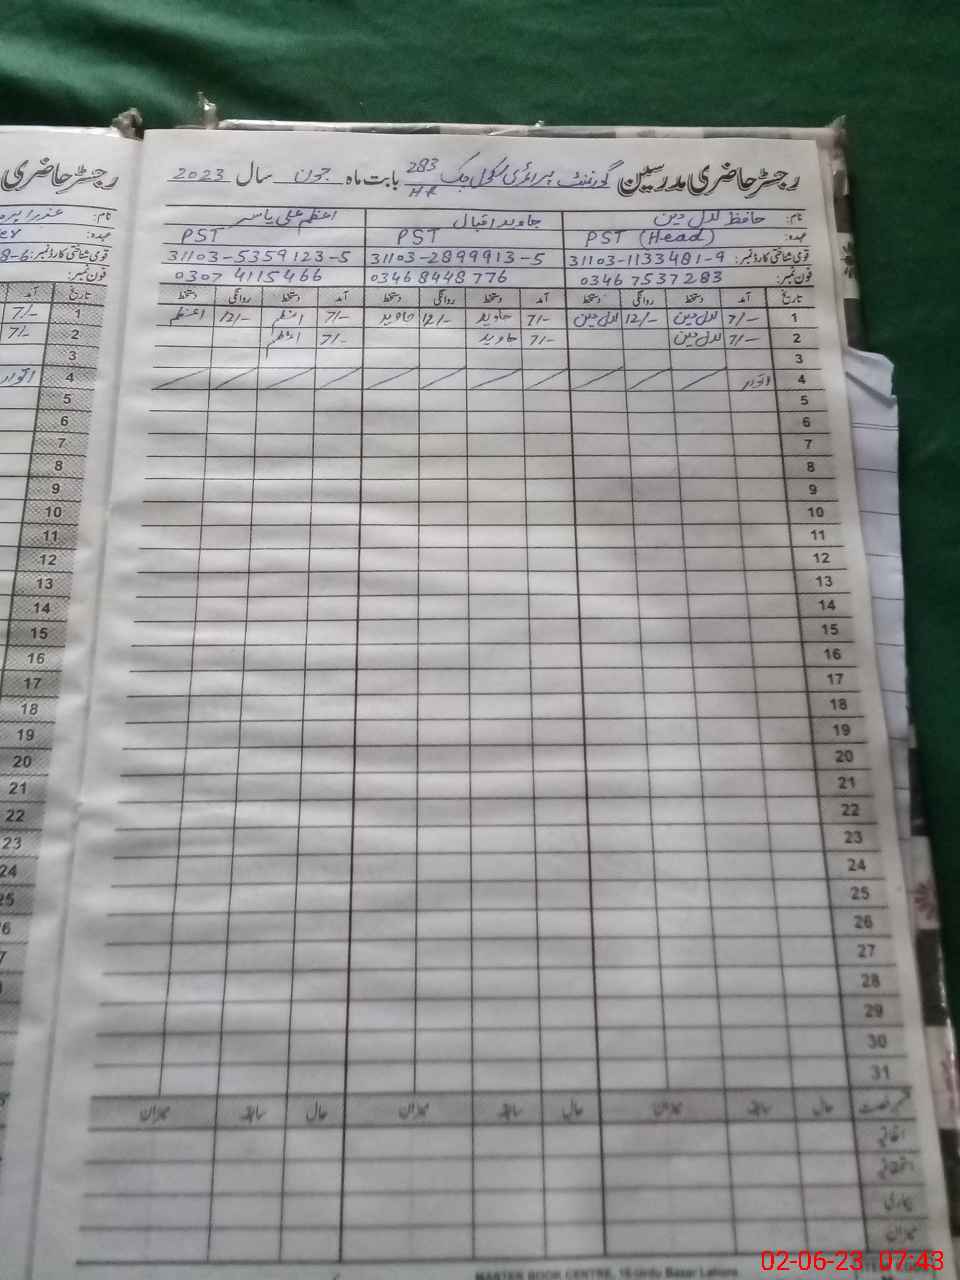 رجسٹر حاضری
رجسٹر حاضری مدرسین گورنمنٹ پرائمری سکول چک 283 HR بابت ماہ جون سال 2023
نام: حافظ لال دین جاوید اقبال اعظم علی یاسر
عہدہ: PST (Head) PST PST
قومی شناختی کارڈ نمبر: 31103-1133481-9 31103-2899913-5 31103-5359123-5
فون نمبر: 0346 7537283 0346 8448776 0307 4115466
تاریخ آمد دستخط روانگی دستخط آمد دستخط روانگی دستخط آمد دستخط روانگی دستخط
1 7/- لال دین 12/- لال دین 7/- جاوید 12/- جاوید 7/- اعظم 12/- اعظم
2 7/- لال دین 7/- جاوید 7/- اعظم
3
4 اتوار
5
6
7
8
9
10
11
12
13
14
15
16
17
18
19
20
21
22
23
24
25
26
27
28
29
30
31
قسم رخصت حال سابقہ میزان حال سابقہ میزان حال سابقہ میزان
اتفاقیہ
استحقاقیہ
بیماری
میزان
MASTER BOOK CENTRE, 16-Urdu Bazar Lahore
نام:
عہدہ:
قومی شناختی کارڈ نمبر:
فون نمبر:
تاریخ آمد
1 7/-
2 7/-
3
4 اتوار
5
6
7
8
9
10
11
12
13
14
15
16
17
18
19
20
21
22
23
24
25
02-06-23 07:43